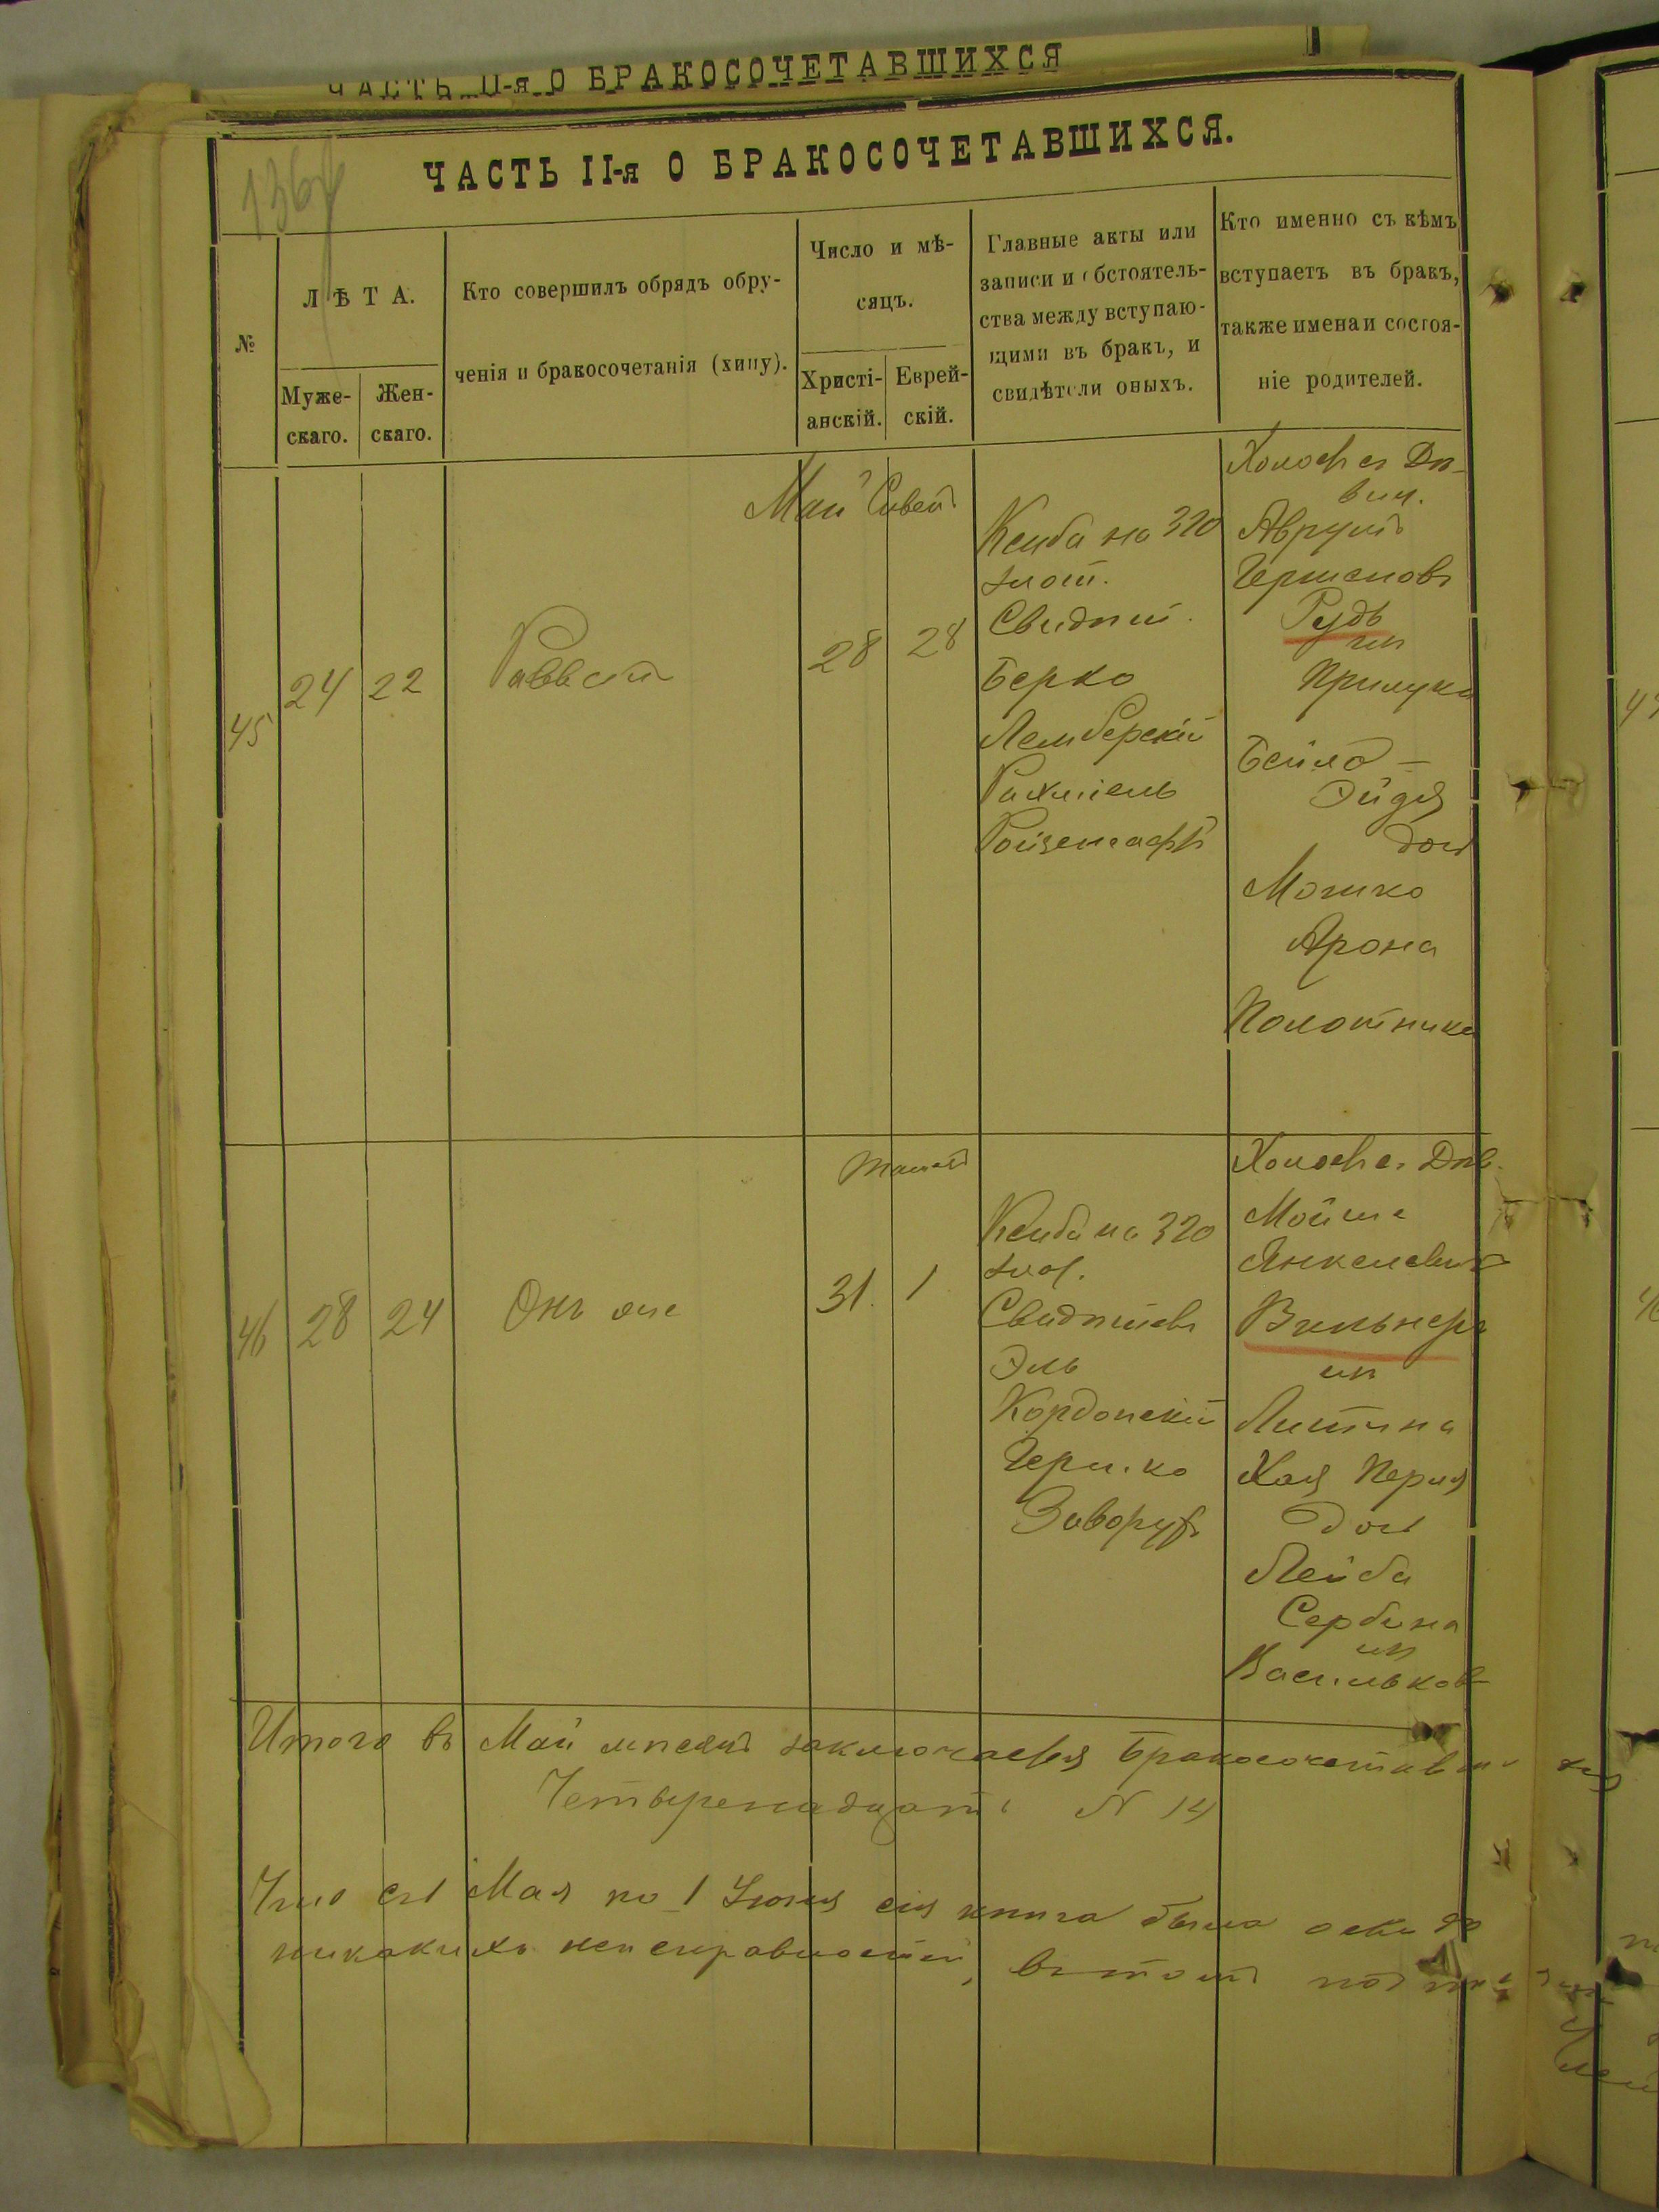 ЧАСТЬ II-я О БРАКОСОЧЕТАВШИХСЯ
ЧАСТЬ II-я О БРАКОСОЧЕТАВШИХСЯ.
136
№
ЛѢТА.
Муже-
скаго.
Жен-
скаго.
Кто совершилъ обрядъ обру-
ченія и бракосочетанія (хипу).
Число и мѣ-
сяцъ.
Христі-
анскій.
Еврей-
скій.
Главные акты или
записи и обстоятель-
ства между вступаю-
щими въ бракъ, и
свидѣтели оныхъ.
Кто именно съ кѣмъ
вступаетъ въ бракъ,
также имена и состоя-
ніе родителей.
45
24
22
Раввинъ
Май
28
Сивенъ
28
Ксиба на 320
злот.
Свидѣт.
Берко
Лемберскій
Рахмiель
Холостъ съ Дѣ-
виц.
Аврумъ
Гершковъ
Рудь
Прилука
Бейла -
Эйдля
Мошко
Арона
Полотника
46
28
24
Онъ же
31.
1
Ксиба на 320
злот.
Эль
Кордонскій
Гершко
Холостъ съ Дѣв.
Мойше
Янкелевъ
Вильнеръ
изъ
Литина
Хая Перля
Лейба
Сербина
изъ
Васильков
Итого въ Май мѣсяцѣ заключается бракосочетавши
Четыренадцать № 14
Мая по 1 Іюня сія книга была
никакихъ неисправностей, въ томъ